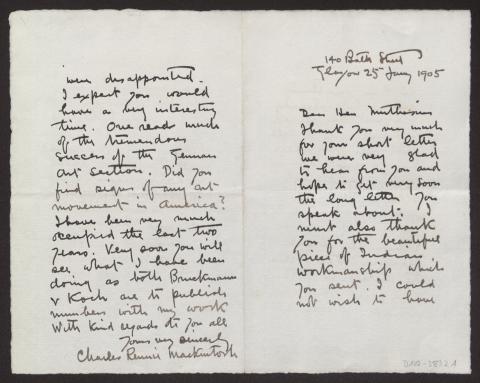 140 Bath Street
Glasgow 25 Jany 1905
Dear Herr Muthesius
Thank you very much
for your short letter
we were very glad
to hear from you and
hope to get very soon
the long letter you
speak about. I
must also thank
you for the beautiful
piece of Indian
workmanship which
you sent. I could
not wish to have
were disappointed.
I expect you would
have a very interesting
time. One read much
of the tremendous
success of the German
art section. Did you
find signs of any art
movement in America?
I have been very much
occupied the last two
years. Very soon you will
see what I have been
doing as both Bruckmann
& Koch are to publish
numbers with my work
With kind regards to you all
Yours very sincerely
Charles Rennie Mackintosh